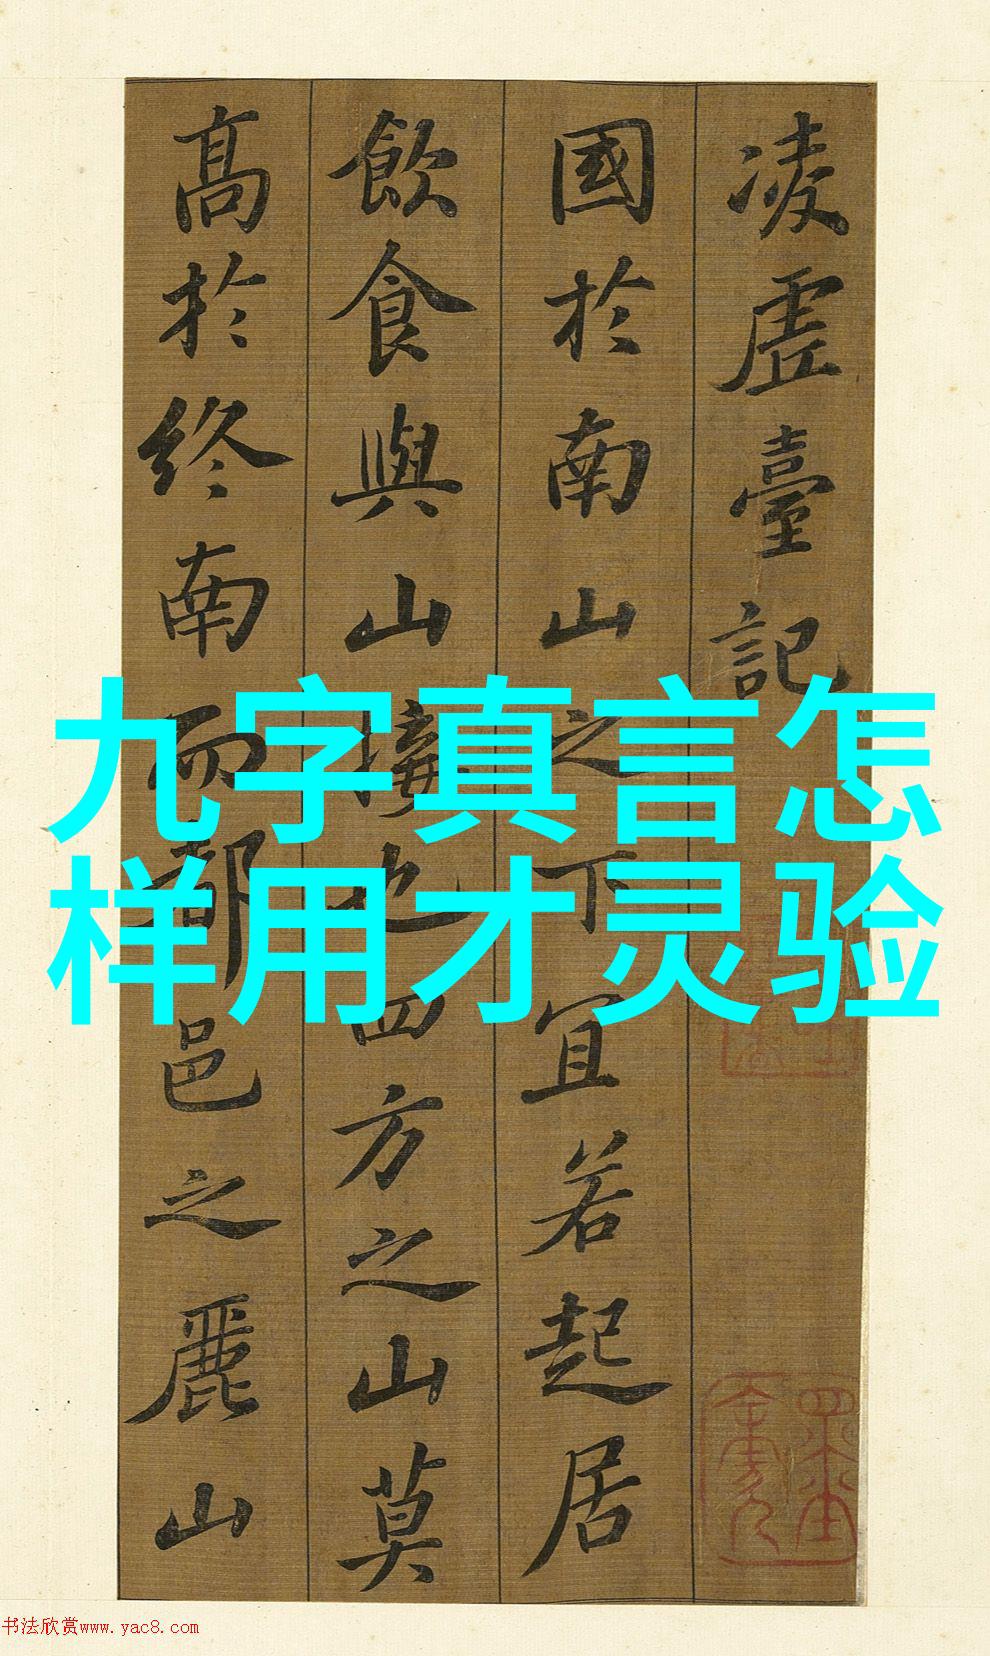 凌虛臺記
國於南山之下宜若起居
飲食與山接也四方之山莫
高於終南而都邑之麗山
九字真言怎
样用才灵验
书法欣赏www.yac8.com